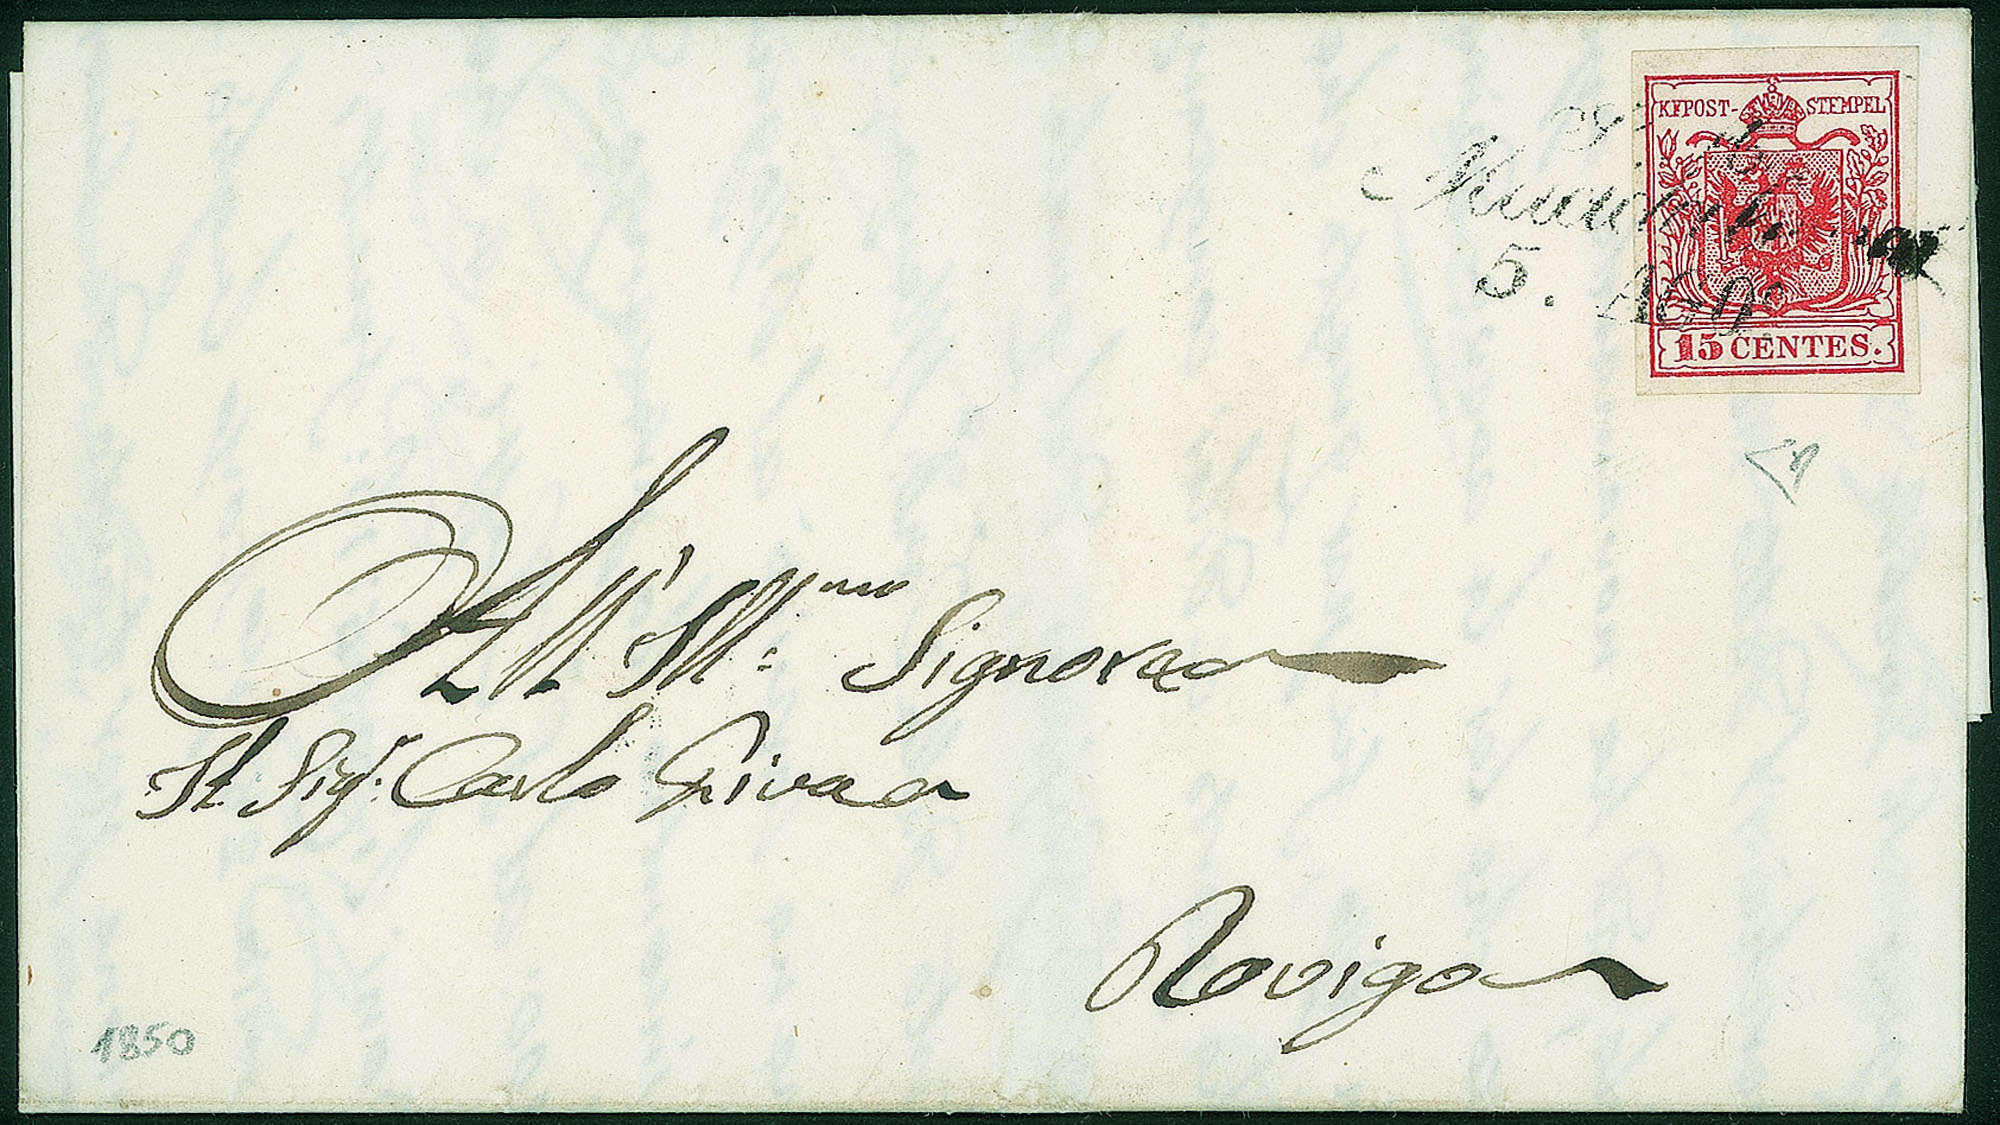 KKPOST-STEMPEL
5. AGO.
15 CENTES.
All' Ill:mo Signore
Il Sigr. Carlo
Rovigo
1850